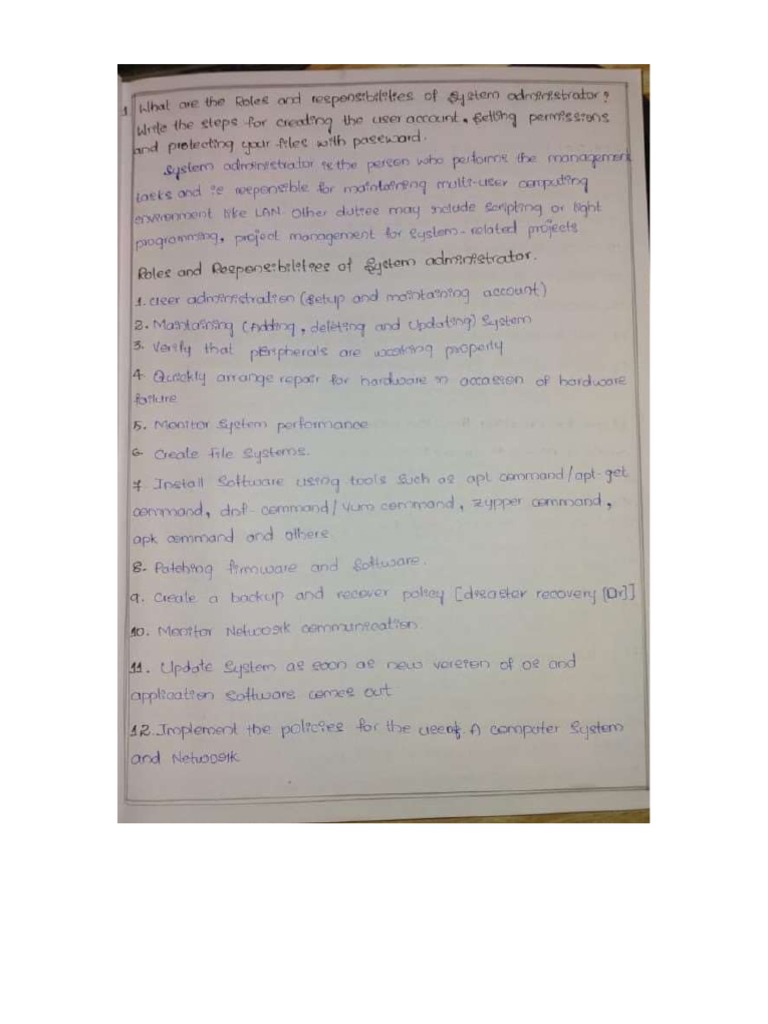 1 What are the Roles and responsibilities of System administrator?
Write the steps for creating the user account, Setting permissions
and protecting your files with password.
System administrator is the person who performs the management
tasks and is responsible for maintaining multi-user computing
environment like LAN. Other duties may include scripting or light
programming, project management for System-related projects
Roles and Responsibilities of System administrator.
1. User administration (Setup and maintaining account)
2. Maintaining (Adding, deleting and Updating) System
3. Verify that peripherals are working properly
4. Quickly arrange repair for hardware in occassion of hardware
failure
5. Monitor System performance
6- Create File Systems.
7 Install Software using tools such as apt command/apt-get
command, dnf- command/yum command, zypper command,
apk command and others.
8- Patching firmware and Software.
9. Create a backup and recover policy [disaster recovery [Dr]]
10. Monitor Network communication.
11. Update System as soon as new version of os and
application Software comes out
12. Implement the policies for the use of A computer System
and Network